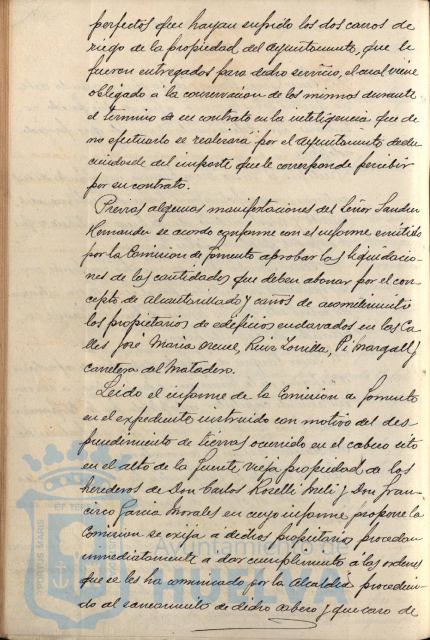 perfectos que hayan sufrido los dos carros de
riego de la propiedad del Ayuntamiento, que le
fueron entregados para dicho servicio, el cual viene
obligado á la conservacion de los mismos durante
el termino de su contrato en la inteligencia que de
no efectuarlo se realizará por el Ayuntamiento dedu
ciendosele del importe que le corresponde percibir
por su contrato.
Previas algunas manifestaciones del Señor Sanchez
Hernandez se acordo conforme con el informe emitido
por la Comision de Fomento aprobar las liquidacio-
nes de las cantidades que deben abonar por el con
cepto de alcantarillado y caños de
los propietarios de edificios enclavados en las Ca
lles José Maria, Ruiz Zorrilla, Pi Margall y
carretera del Matadero.
Leido el informe de la Comision de Fomento
en el expediente instruido con motivo del des
prendimiento de tierras ocurrido en el cabezo sito
en el alto de la Fuente Vieja propiedad de los
herederos de Don Carlos Roselli y Don Fran-
cisco Garcia Morales en cuyo informe propone la
Comision se exija a dichos propietarios procedan
inmediatamente a dar cumplimiento a las ordenes
que se les ha comunicado por la Alcaldia procedien-
do al saneamiento de dicho cabezo y que caso de
Ayuntamiento de
HUELVA
PORTUS MARIS ET TERRAE